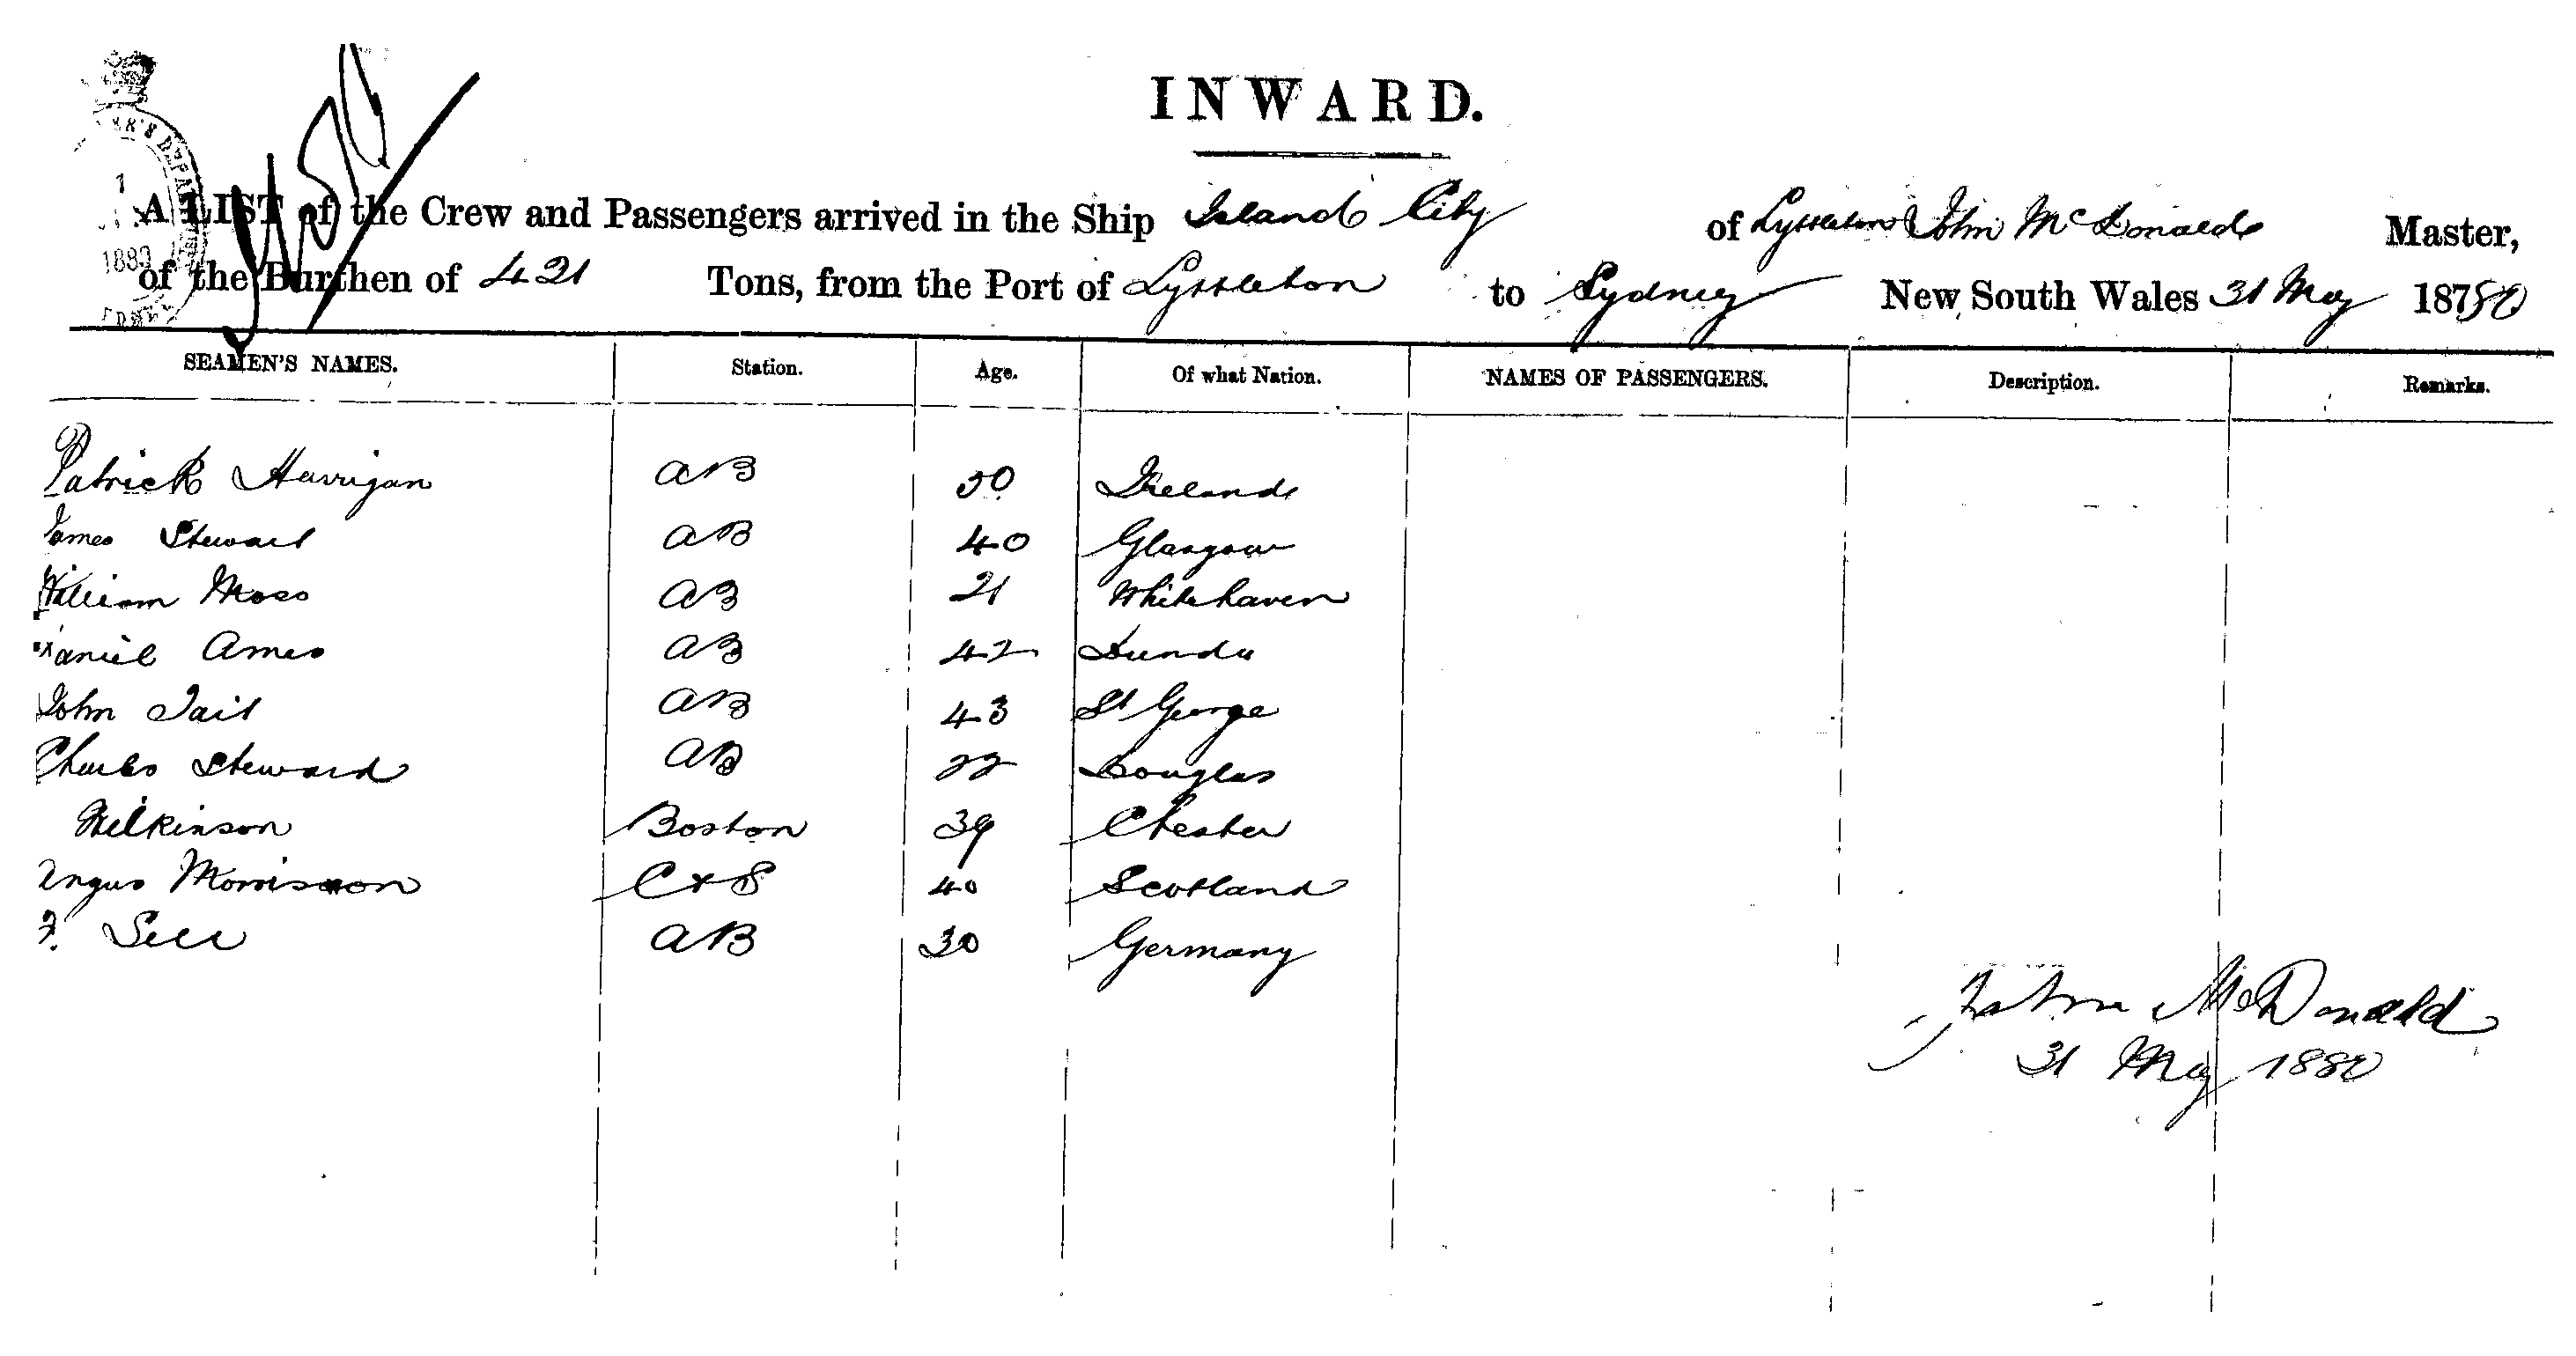 INWARD.
A LIST of the Crew and Passengers arrived in the Ship Island City of Lyttleton John McDonald Master,
of the Burthen of 421 Tons, from the Port of Lyttleton to Sydney New South Wales 31 May 18780
SEAMEN'S NAMES. Station. Age. Of what Nation. NAMES OF PASSENGERS. Description. Remarks.
Patrick Harrigan AB 50 Ireland
James Stewart AB 40 Glasgow
William Moss AB 21 Whitehaven
Daniel Ames AB 42 Dundee
John Tait AB 43 St George
Charles Steward AB 22 Douglas
Wilkinson Boston 39 Chester
Angus Morrison C & S 40 Scotland
F. AB 30 Germany
John McDonald
31 May 1880